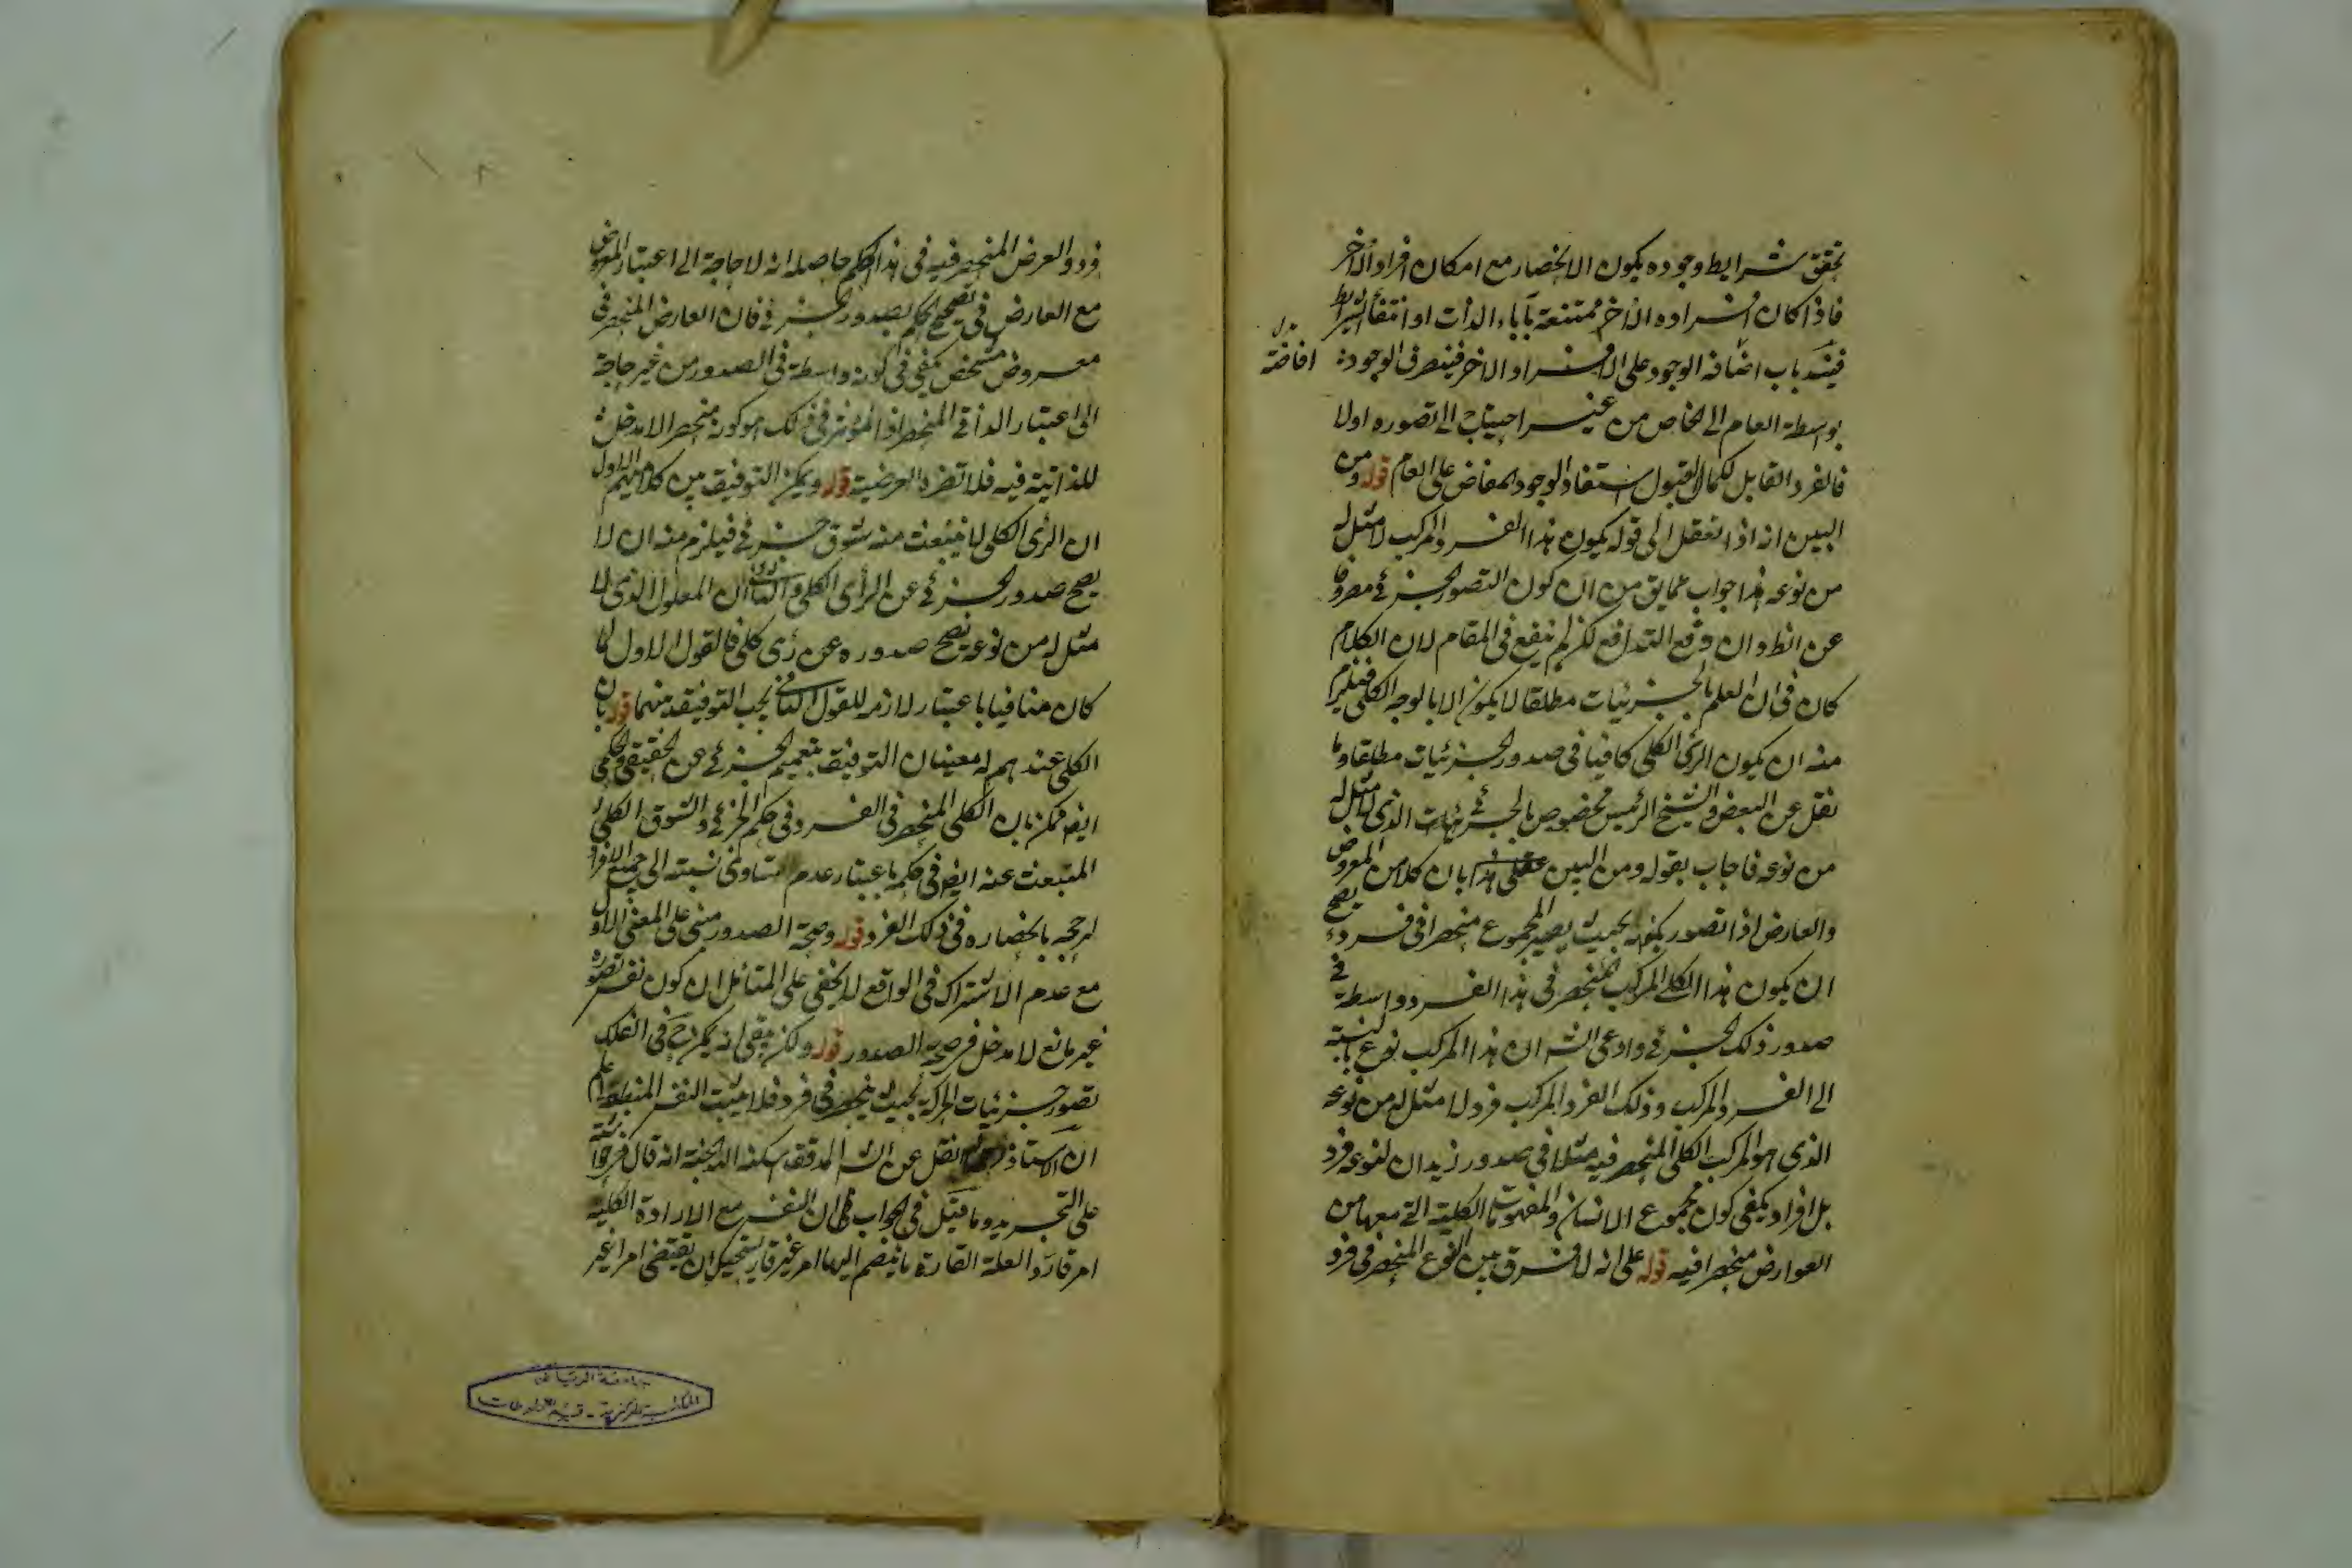 تحقق شرايط وجوده يكون الانحصار مع امكان افراد الاخر
فاذا كان افراده الاخر ممتنعة بآباء الذات او انتفاء الشرايط
فينسد باب اضافة الوجود على الافراد الاخر فينصرف الوجود
افاضته
بواسطة العام الى الخاص من غير احتياج الى تصوره اولا
فالفرد القابل لكمال القبول استفاد الوجود المفاض على العام قوله ومن
البين انه اذا تعقل الى قوله يكون هذا الفرد المركب لا مثل له
من نوعه هذا جواب عما يق من ان كون التصور الجزئي مصروفا
عن الظ وان وقع التدافع لكن لم ينفع في المقام لان الكلام
كان في ان العلم بالجزئيات مطلقا لا يكون الا بالوجه الكلي فيلزم
منه ان يكون الرأي الكلي كافيا في صدور الجزئيات مطلقا وما
نقل عن البعض والشيخ الرئيس مخصوص بالجزئيات الذي لا مثل له
من نوعه فاجاب بقوله ومن البين بان كلا من المعروض
والعارض اذا تصور بكونه بحيث يصير المجموع منحصرا في فرد يصح
ان يكون هذا الكلي المركب المنحصر في هذا الفرد واسطة في
صدور ذلك الجزئي وادعى الش ان هذا المركب نوع بالنسبة
الى الفرد المركب وذلك الفرد المركب فرد لا مثل له من نوعه
الذي هو المركب الكلي المنحصر فيه مثلا في صدور زيد ان لنوعه فرد
بل افراد يكفي كون مجموع الانسان والمفهومات الكلية التي معها من
العوارض منحصرا فيه قوله على انه لا فرق بين النوع المنحصر في فرد
فرد والعرض المنحصر فيه في هذا الحكم حاصله انه لا حاجة الى اعتبار المعروض
مع العارض في تصحيح الحكم بصدور الجزئي فان العارض المنحصر في
معروض مشخص يكفي في كونه واسطة في الصدور من غير حاجة
الى اعتبار الذاتي المنحصر اذ المؤثر في ذلك هو كونه منحصرا لا مدخل
للذاتية فيه فلا تضره العرضية قوله ويمكن التوفيق بين كلاميهم الاول
ان الرأي الكلي لا ينبعث منه شوق جزئي فيلزم منه ان لا
يصح صدور الجزئي عن الرأي الكلي والثاني ان المعلول الذي لا
مثل له من نوعه يصح صدوره عن رأي كلي فالقول الاول لما
كان منافيا باعتبار لازمه للقول الثاني يجب التوفيق بينهما قوله بان
الكلي عندهم له معنيان التوفيق بتعميم الجزئي عن الحقيقي والحكمي
ايض ممكن بان الكلي المنحصر في الفرد في حكم الجزئي والشوق الكلي
المنبعث عنه ايض في حكمه باعتبار عدم تساوي نسبته الى جميع الافراد بل
لرجحه بانحصاره في ذلك الفرد قوله وصحة الصدور مبني على المعنى الاول
مع عدم الاشتراك في الواقع لا يخفى على المتأمل ان كون نفس تصوره
غير مانع لا مدخل في صحة الصدور قوله ولكن بقي انه يمكن ح في الفلك
تصور جزئيات الحركة بحيث ينحصر في فرد فلا يثبت النفس المنطبعة اعلم
ان الاستاذ نقل عن الش المدقق اسكنه الله الجنة انه قال في حواشيه
على التجريد وما قيل في الجواب ظ ان النفس مع الارادة الكلية
امر قار والعلة القارة ما ينضم اليها امر غير قار يستحيل ان يقتضي امرا غير
جامعة الرياض
المكتبة المركزية - قسم المخطوطات